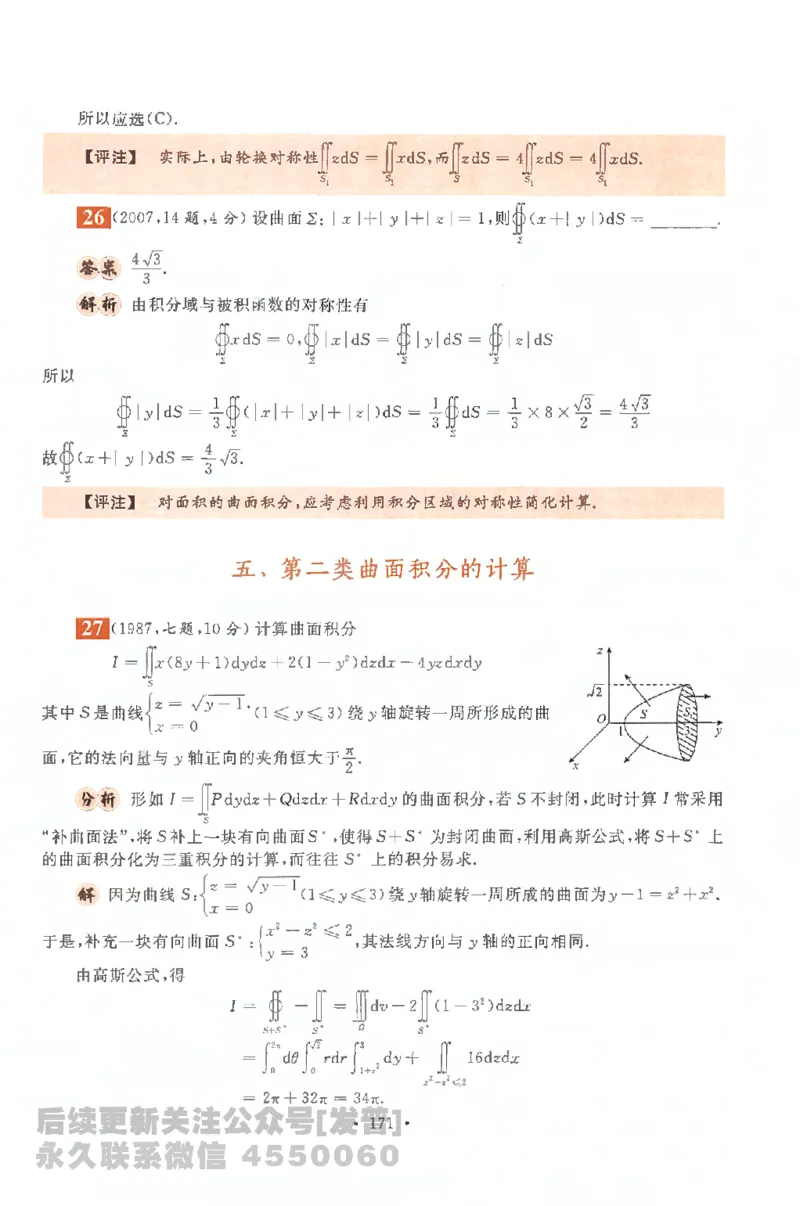 所以应选(C).
【评注】 实际上,由轮换对称性∬_{S₁}zdS = ∬_{S₁}xdS,而∬_S zdS = 4∬_{S₁}zdS = 4∬_{S₁}xdS.
26 (2007,14题,4分) 设曲面Σ:|x|+|y|+|z|=1,则∯_Σ(x+|y|)dS = ______.
答案 4√3/3.
解析 由积分域与被积函数的对称性有
∯_Σ xdS = 0,∯_Σ|x|dS = ∯_Σ|y|dS = ∯_Σ|z|dS
所以
∯_Σ|y|dS = 1/3∯_Σ(|x|+|y|+|z|)dS = 1/3∯_Σ dS = 1/3 × 8 × √3/2 = 4√3/3
故∯_Σ(x+|y|)dS = 4/3 √3.
【评注】 对面积的曲面积分,应考虑利用积分区域的对称性简化计算.
五、第二类曲面积分的计算
27 (1987,七题,10分) 计算曲面积分
I = ∬_S x(8y+1)dydz + 2(1-y²)dzdx - 4yzdxdy
其中S是曲线{z = √(y-1), x = 0 (1≤y≤3)绕y轴旋转一周所形成的曲
面,它的法向量与y轴正向的夹角恒大于π/2.
z
√2
O
1
S
S*
3
y
x
分析 形如I = ∬_S Pdydz+Qdzdx+Rdxdy的曲面积分,若S不封闭,此时计算I常采用
“补曲面法”,将S补上一块有向曲面S*,使得S+S*为封闭曲面,利用高斯公式,将S+S*上
的曲面积分化为三重积分的计算,而往往S*上的积分易求.
解 因为曲线S:{z = √(y-1), x = 0 (1≤y≤3)绕y轴旋转一周所成的曲面为y-1 = z²+x².
于是,补充一块有向曲面S*:{x²-z²≤2, y = 3,其法线方向与y轴的正向相同.
由高斯公式,得
I = ∯_{S+S*} - ∬_{S*} = ∭_Ω dv - 2∬_{S*}(1-3²)dzdx
= ∫₀^{2π}dθ∫₀^{√2}rdr∫_{1+r²}^3 dy + ∬_{x²+z²≤2} 16dzdx
= 2π+32π = 34π.
· 171 ·
后续更新关注公众号[发普]
永久联系微信 4550060